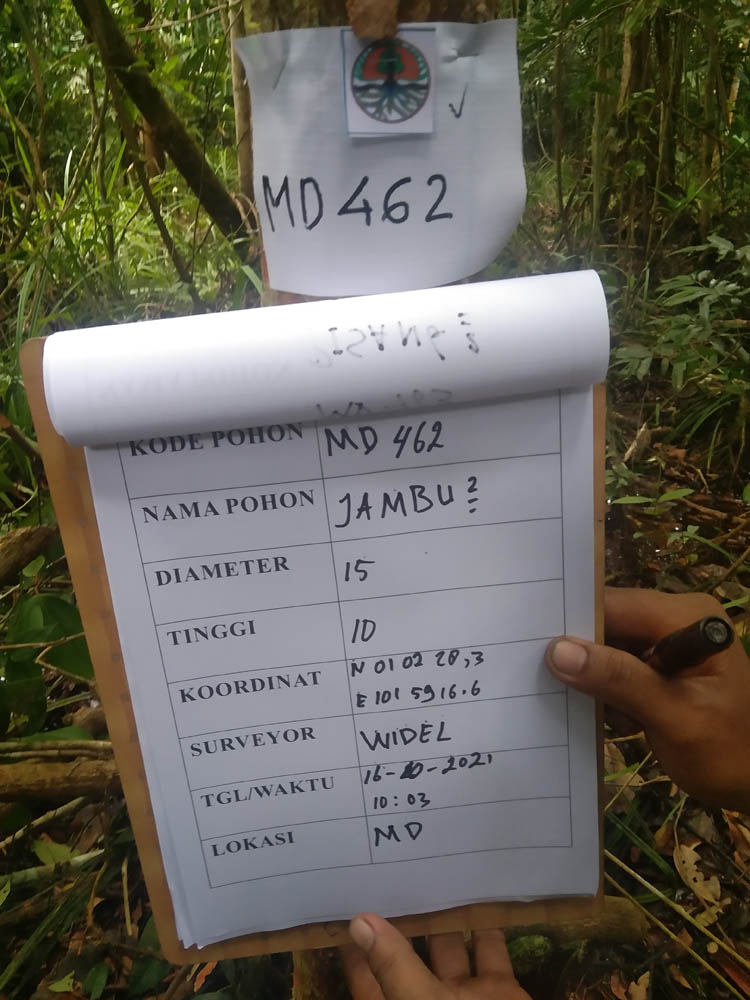 MD 462
KODE POHON MD 462
NAMA POHON JAMBU 2
DIAMETER 15
TINGGI 10
KOORDINAT N 01 02 28,3
E 101 59 16.6
SURVEYOR WIDEL
TGL/WAKTU 16-10-2021
10:03
LOKASI MD